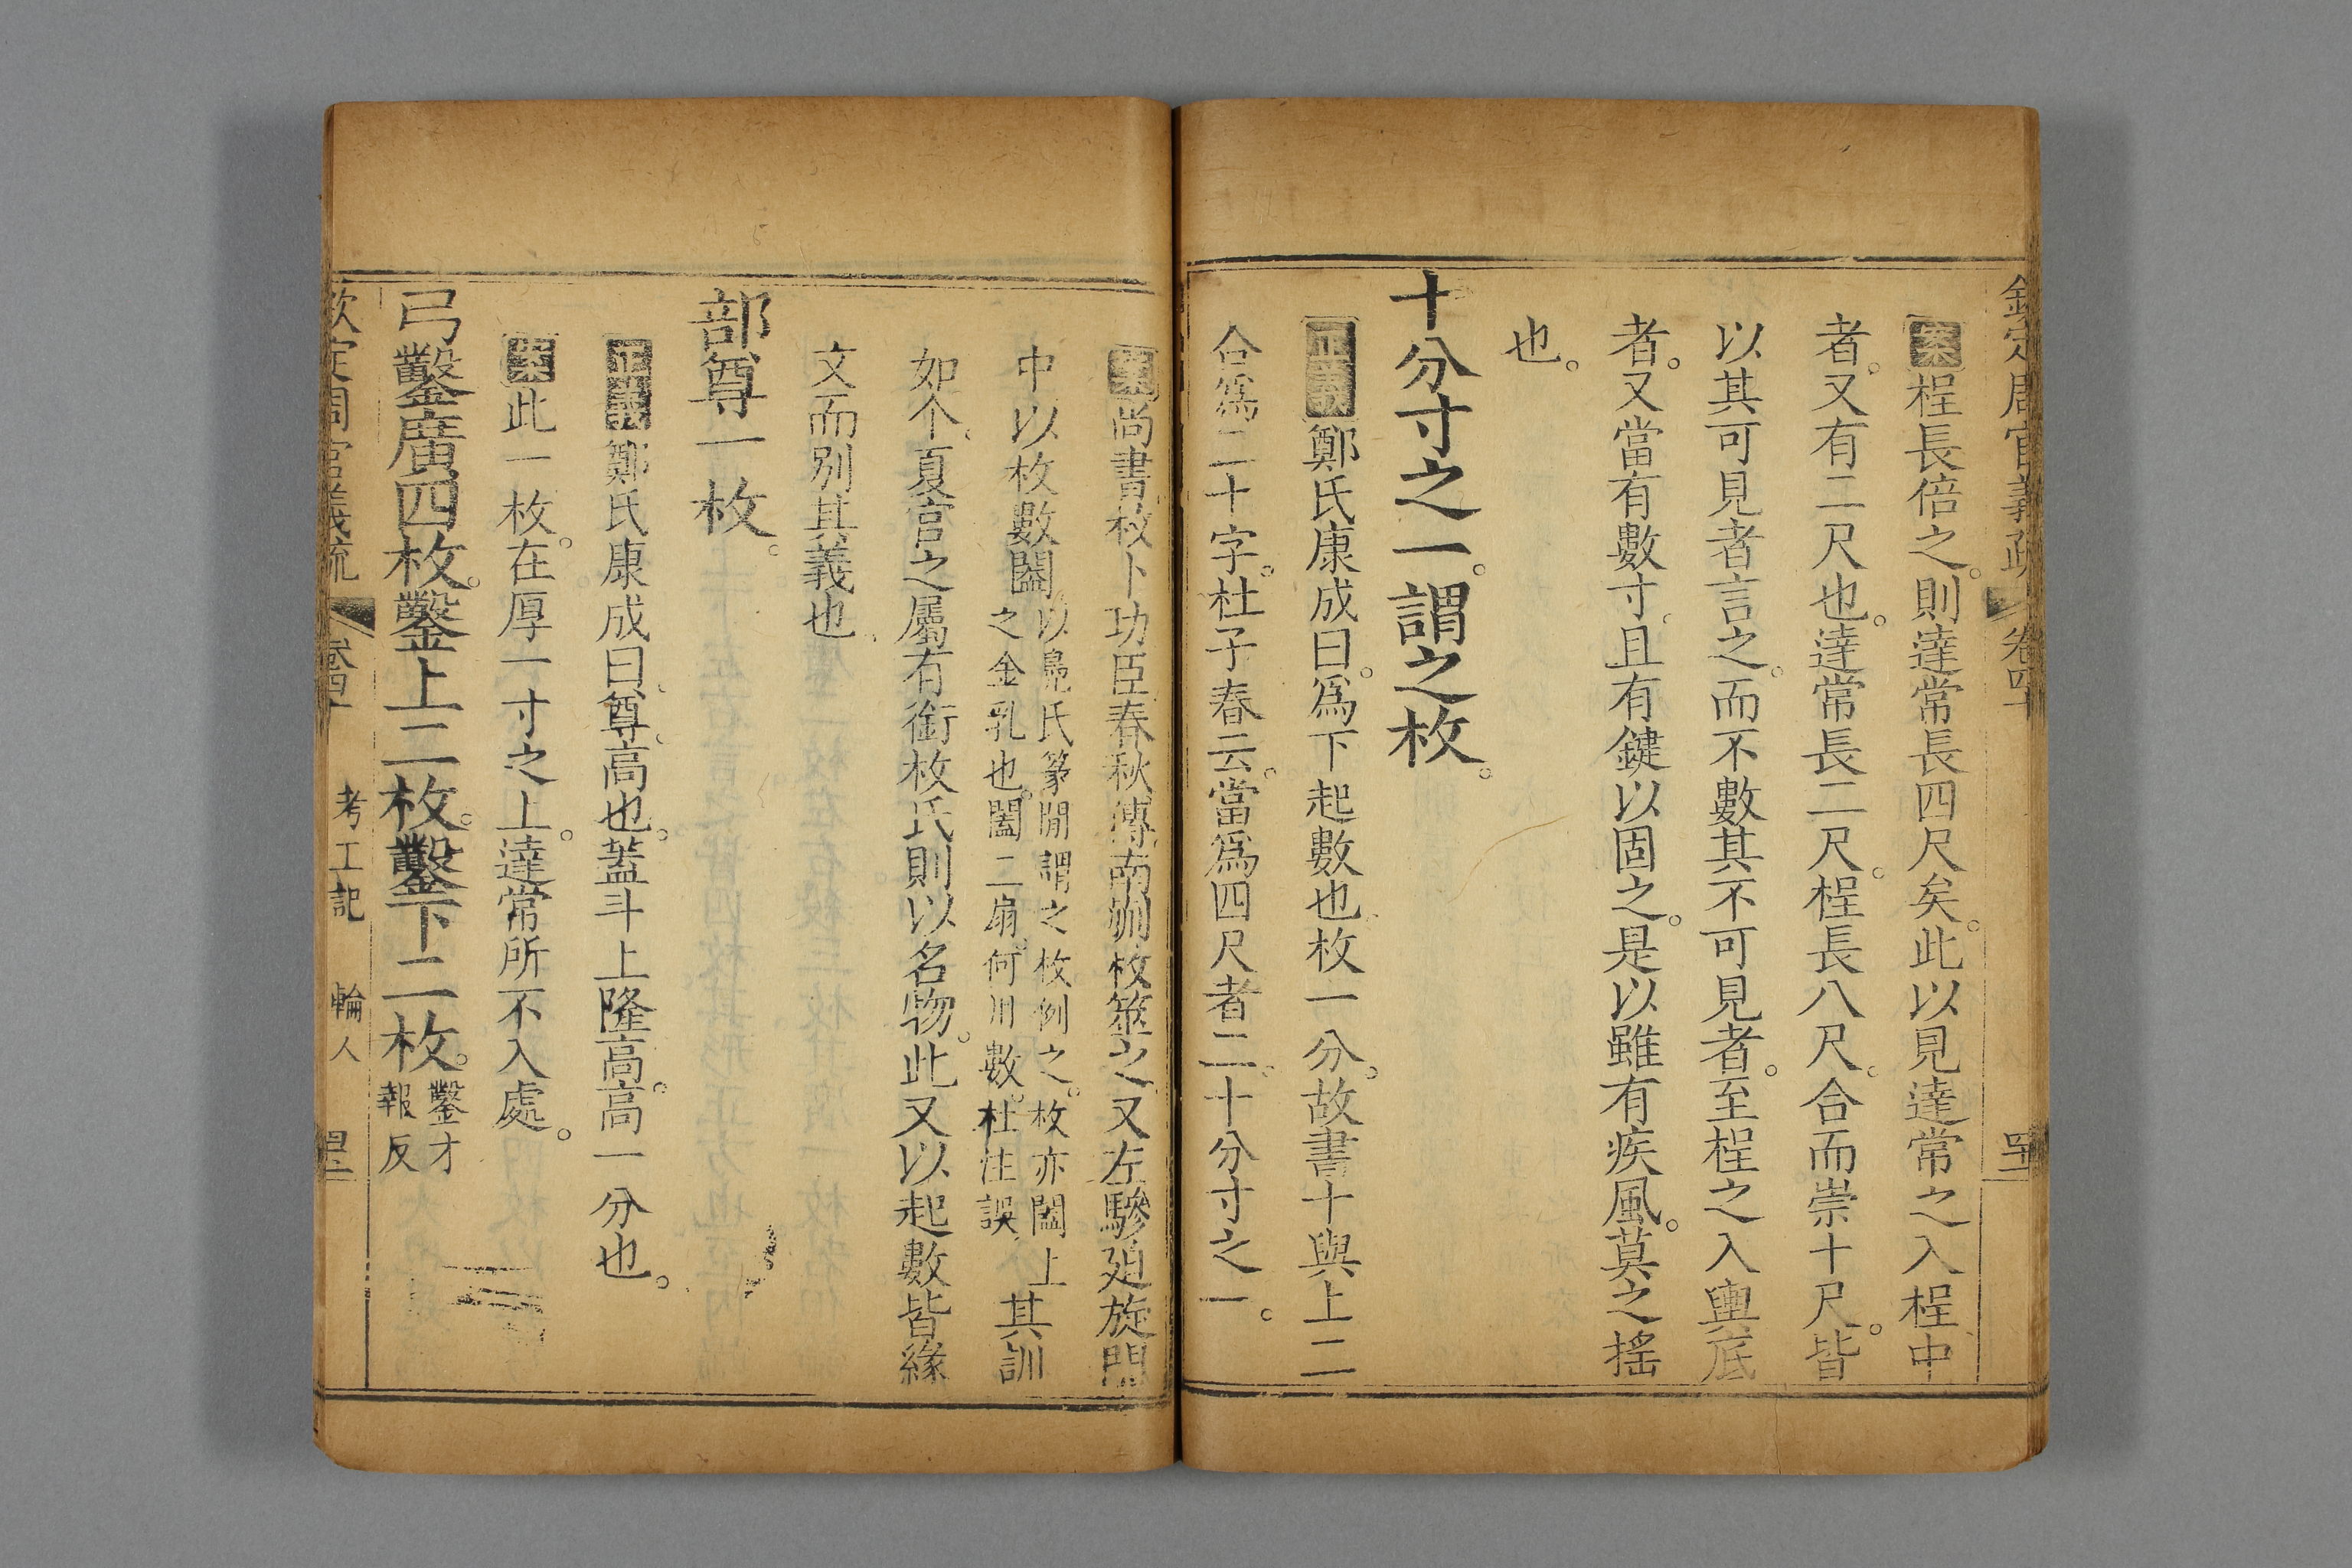 欽定周官義疏 卷四十
案桯長倍之。則達常長四尺矣。此以見達常之入桯中
者。又有二尺也。達常長二尺。桯長八尺。合而崇十尺。皆
以其可見者言之。而不數其不可見者。至桯之入輿底
者。又當有數寸。且有鍵以固之。是以雖有疾風。莫之搖
也。
十分寸之一。謂之枚。
正義鄭氏康成曰。爲下起數也。枚一分。故書十與上二
合爲二十字。杜子春云。當爲四尺者二。十分寸之一。
案尚書枚卜功臣春秋傳南蒯枚筮之又左驂廹旋門
中以枚數闔以鳧氏篆閒謂之枚例之。枚亦闔上之金乳也。闔二扇。何用數。杜注誤其訓
如个。夏官之屬有銜枚氏則以名物。此又以起數皆緣
文而別其義也
部尊一枚。
正義鄭氏康成曰。尊。高也。蓋斗上隆高。高一分也。
案此一枚。在厚一寸之上。達常所不入處。
弓鑿廣四枚。鑿上二枚。鑿下二枚。鑿才報反
欽定周官義疏 卷四十 考工記 輪人